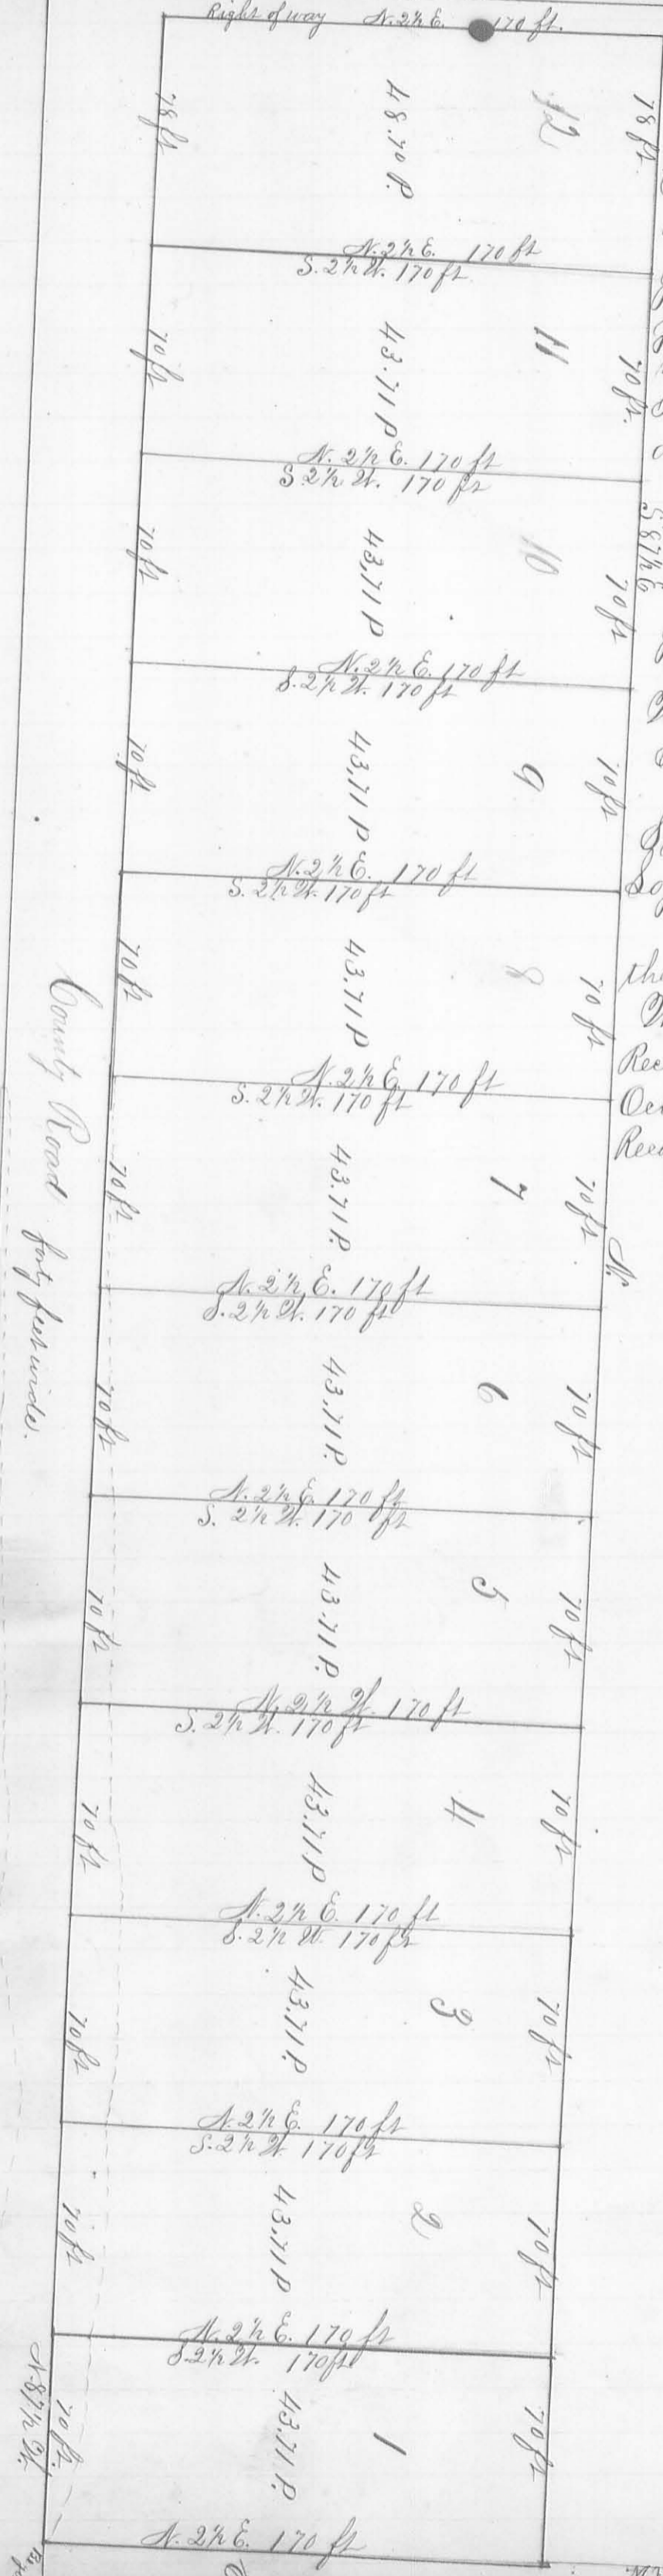 Right of way N. 2½ E. 170 ft.
78 ft
48.70 P.
12
78 ft.
N. 2½ E. 170 ft
S. 2½ W. 170 ft
70 ft
43.71 P
11
70 ft.
N. 2½ E. 170 ft
S 2½ W. 170 ft
S 87½ E
70 ft
43.71 P
10
70 ft
N. 2½ E. 170 ft
S. 2½ W. 170 ft
70 ft
43.71 P
9
70 ft
N. 2½ E. 170 ft
S. 2½ W. 170 ft
70 ft
43.71 P
8
70 ft
the
Rec
N. 2½ E. 170 ft
S. 2½ W. 170 ft
County Road forty feet wide.
70 ft
43.71 P.
7
70 ft
N.
N. 2½ E. 170 ft
S. 2½ W. 170 ft
70 ft
43.71 P.
6
70 ft
N. 2½ E. 170 ft
S. 2½ W. 170 ft
70 ft
43.71 P.
5
70 ft
N. 2½ W. 170 ft
S. 2½ W. 170 ft
70 ft
43.71 P
4
70 ft
N. 2½ E. 170 ft
S. 2½ W. 170 ft
70 ft
43.71 P.
3
70 ft
N. 2½ E. 170 ft
S. 2½ W. 170 ft
70 ft
43.71 P
2
70 ft
N. 2½ E. 170 ft
S. 2½ W. 170 ft
N. 87½ W.
70 ft.
43.71 P.
1
70 ft
N. 2½ E. 170 ft